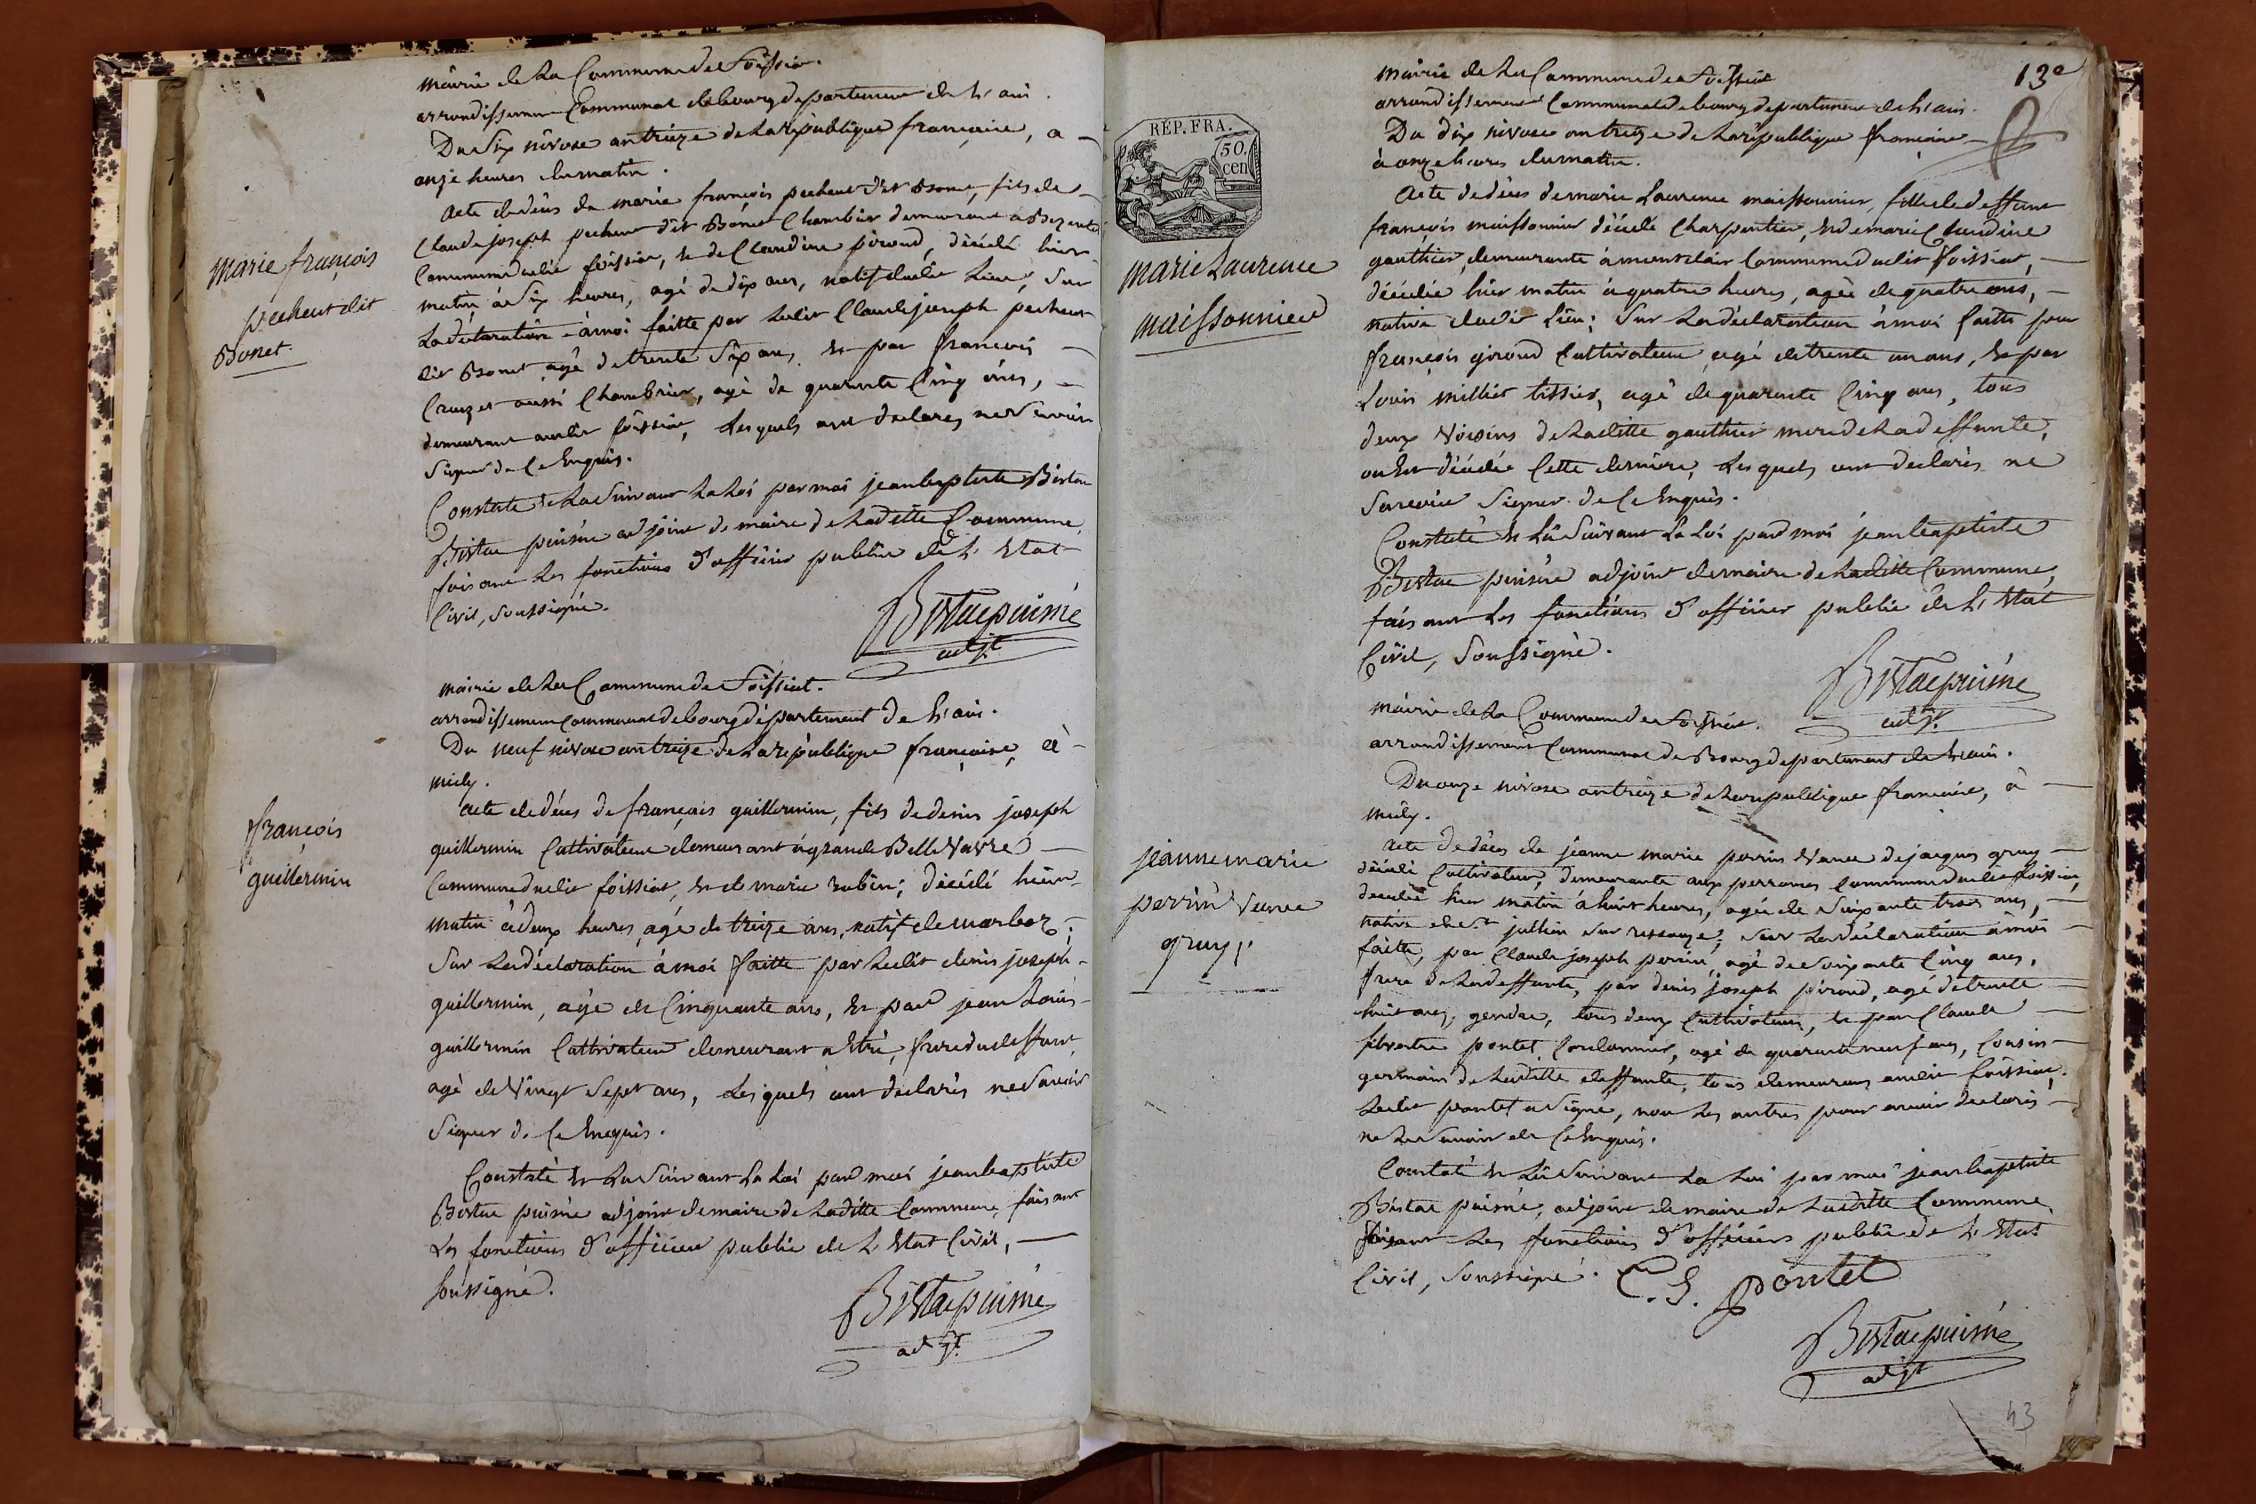 mairie de La Commune de Foissiat.
arrondissement Communal de bourg departement de L'ain.
Du Six nivose an treize de La republique française, a
onze heures du matin.
Marie françois
pecheut dit
Bonet.
Acte de décès de marie françois pecheut dit Bonet, fils de
Claude joseph pecheut dit Bonet Chambrier demeurant a
Commune dudit foissiat, et de Claudine piroud, décédé hier
matin à Six heures, agé de dix ans, natif dudit Lieu, Sur
La déclaration à moi faitte par Ledit Claude joseph pecheut
dit Bonet agé de trente Six ans, et par françois
Cruzet aussi Chambrier, agé de quarante Cinq ans,
demeurant audit foissiat, Lesquels ont declarés ne Savoir
Signer de Ce Enquis.
Constaté et La Suivant La Loi par moi jean baptiste Bistac
Bistac puisné adjoint de maire de Laditte Commune,
faisant Les fonctions d'officier public de L'Etat
Civil, Soussigné.
Bistac puisné
adjt
mairie de La Commune de Foissiat.
arrondissement Communal de bourg département de L'ain.
Du neuf nivose an treize de La republique française, à
midy.
françois
guillermin
Acte de déces de françois guillermin, fils de denis joseph
guillermin Cultivateur demeurant à grande Belle Vavre
Commune dudit foissiat, et de marie rubin; décédé hier
matin à deux heures, agé de treize ans, natif de marboz;
Sur La déclaration à moi faitte par Ledit denis joseph
guillermin, agé de Cinquante ans, et par jean Louis
guillermin Cultivateur demeurant a Etré, frere du deffunt,
agé de Vingt Sept ans, Lesquels ont declarés ne Savoir
Signer de Ce Enquis.
Constaté et La Suivant La Loi par moi jean baptiste
Bistac puisné adjoint de maire de Laditte Commune, faisant
Les fonctions d'officier public de L'Etat Civil,
Soussigné.
Bistac puisné
adjt
13e
mairie de La Commune de Foissiat
arrondissement Communal de bourg departement de L'ain.
Du dix nivose an treize de La republique française
à onze heures du matin.
RÉP. FRA.
50.
cen
marie Laurence
maissonnier
Acte de déces de marie Laurence maissonnier, fille de deffunt
françois maissonnier décédé Charpentier, et de marie Claudine
gauthier, demeurante à montclair Commune dudit Foissiat,
décédée hier matin à quatre heures, agée de quatre ans,
native dudit Lieu; Sur La déclaration à moi faitte par
françois giroud Cultivateur, agé de trente un ans, et par
Louis millier tissier, agé de quarante Cinq ans, tous
deux Voisins de Laditte gauthier mere de La deffunte,
ou Est décédée Cette derniere, Lesquels ont declarés ne
Savoir Signer de Ce Enquis.
Constaté et La Suivant La Loi par moi jean baptiste
Bistac puisné adjoint de maire de Laditte Commune,
faisant Les fonctions d'officier public de L'Etat
Civil, Soussigné.
Bistac puisné
adjt
mairie de La Commune de Foissiat.
arrondissement Communal de Bourg departement de L'ain.
Du onze nivose an treize de La republique française, à
midy.
jeanne marie
perrin Veuve
gruy.
Acte de déces de jeanne marie perrin Veuve de jacques gruy
décédé Cultivateur, demeurante aux perrones Commune dudit foissiat,
decedée hier matin à huit heures, agée de Soixante trois ans,
native de St jullien Sur ressouze; Sur La déclaration à moi
faitte, par Claude joseph perrin, agé de Soixante Cinq ans,
frere de La deffunte, par denis joseph piroud, agé de trente
huit ans, gendre, tous deux Cultivateurs, et par Claude
silvestre pontet Cordonnier, agé de quarante neuf ans, Cousin
germain de Laditte deffunte, tous demeurans audit foissiat.
Ledit pontet a Signé, non Les autres pour avoir declarés
ne Le Savoir de Ce Enquis.
Constaté et La Suivant La Loi par moi jean baptiste
Bistac puisné, adjoint de maire de Laditte Commune,
faisant Les fonctions d'officier public de L'Etat
Civil, Soussigné.
C. S. pontet
Bistac puisné
adjt
43